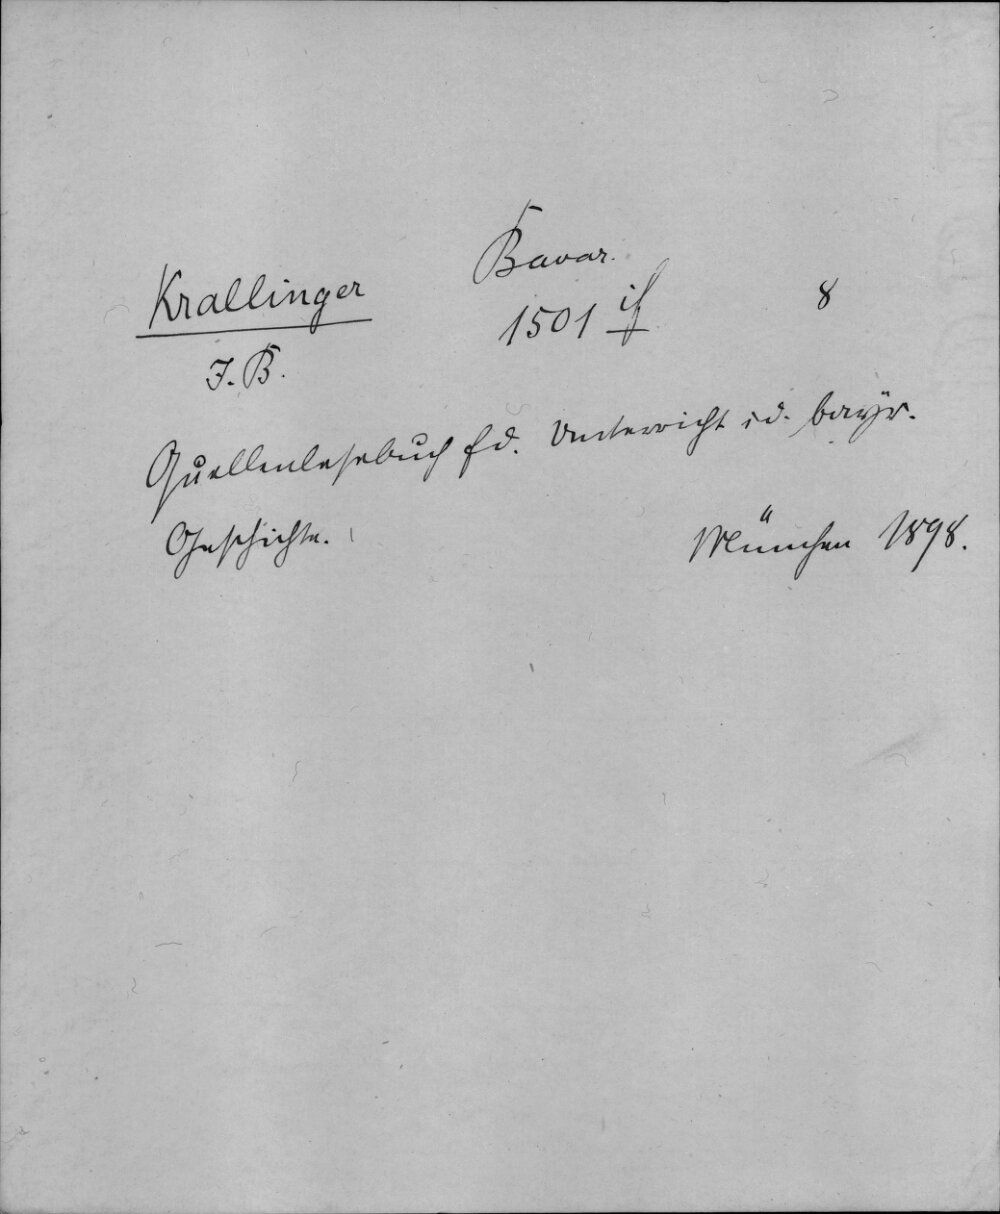 Bavar.
Krallinger 1501 if 8
J. B.
Quellenlesebuch f d. Unterricht i d. bayr.
Geschichte.
München 1898.